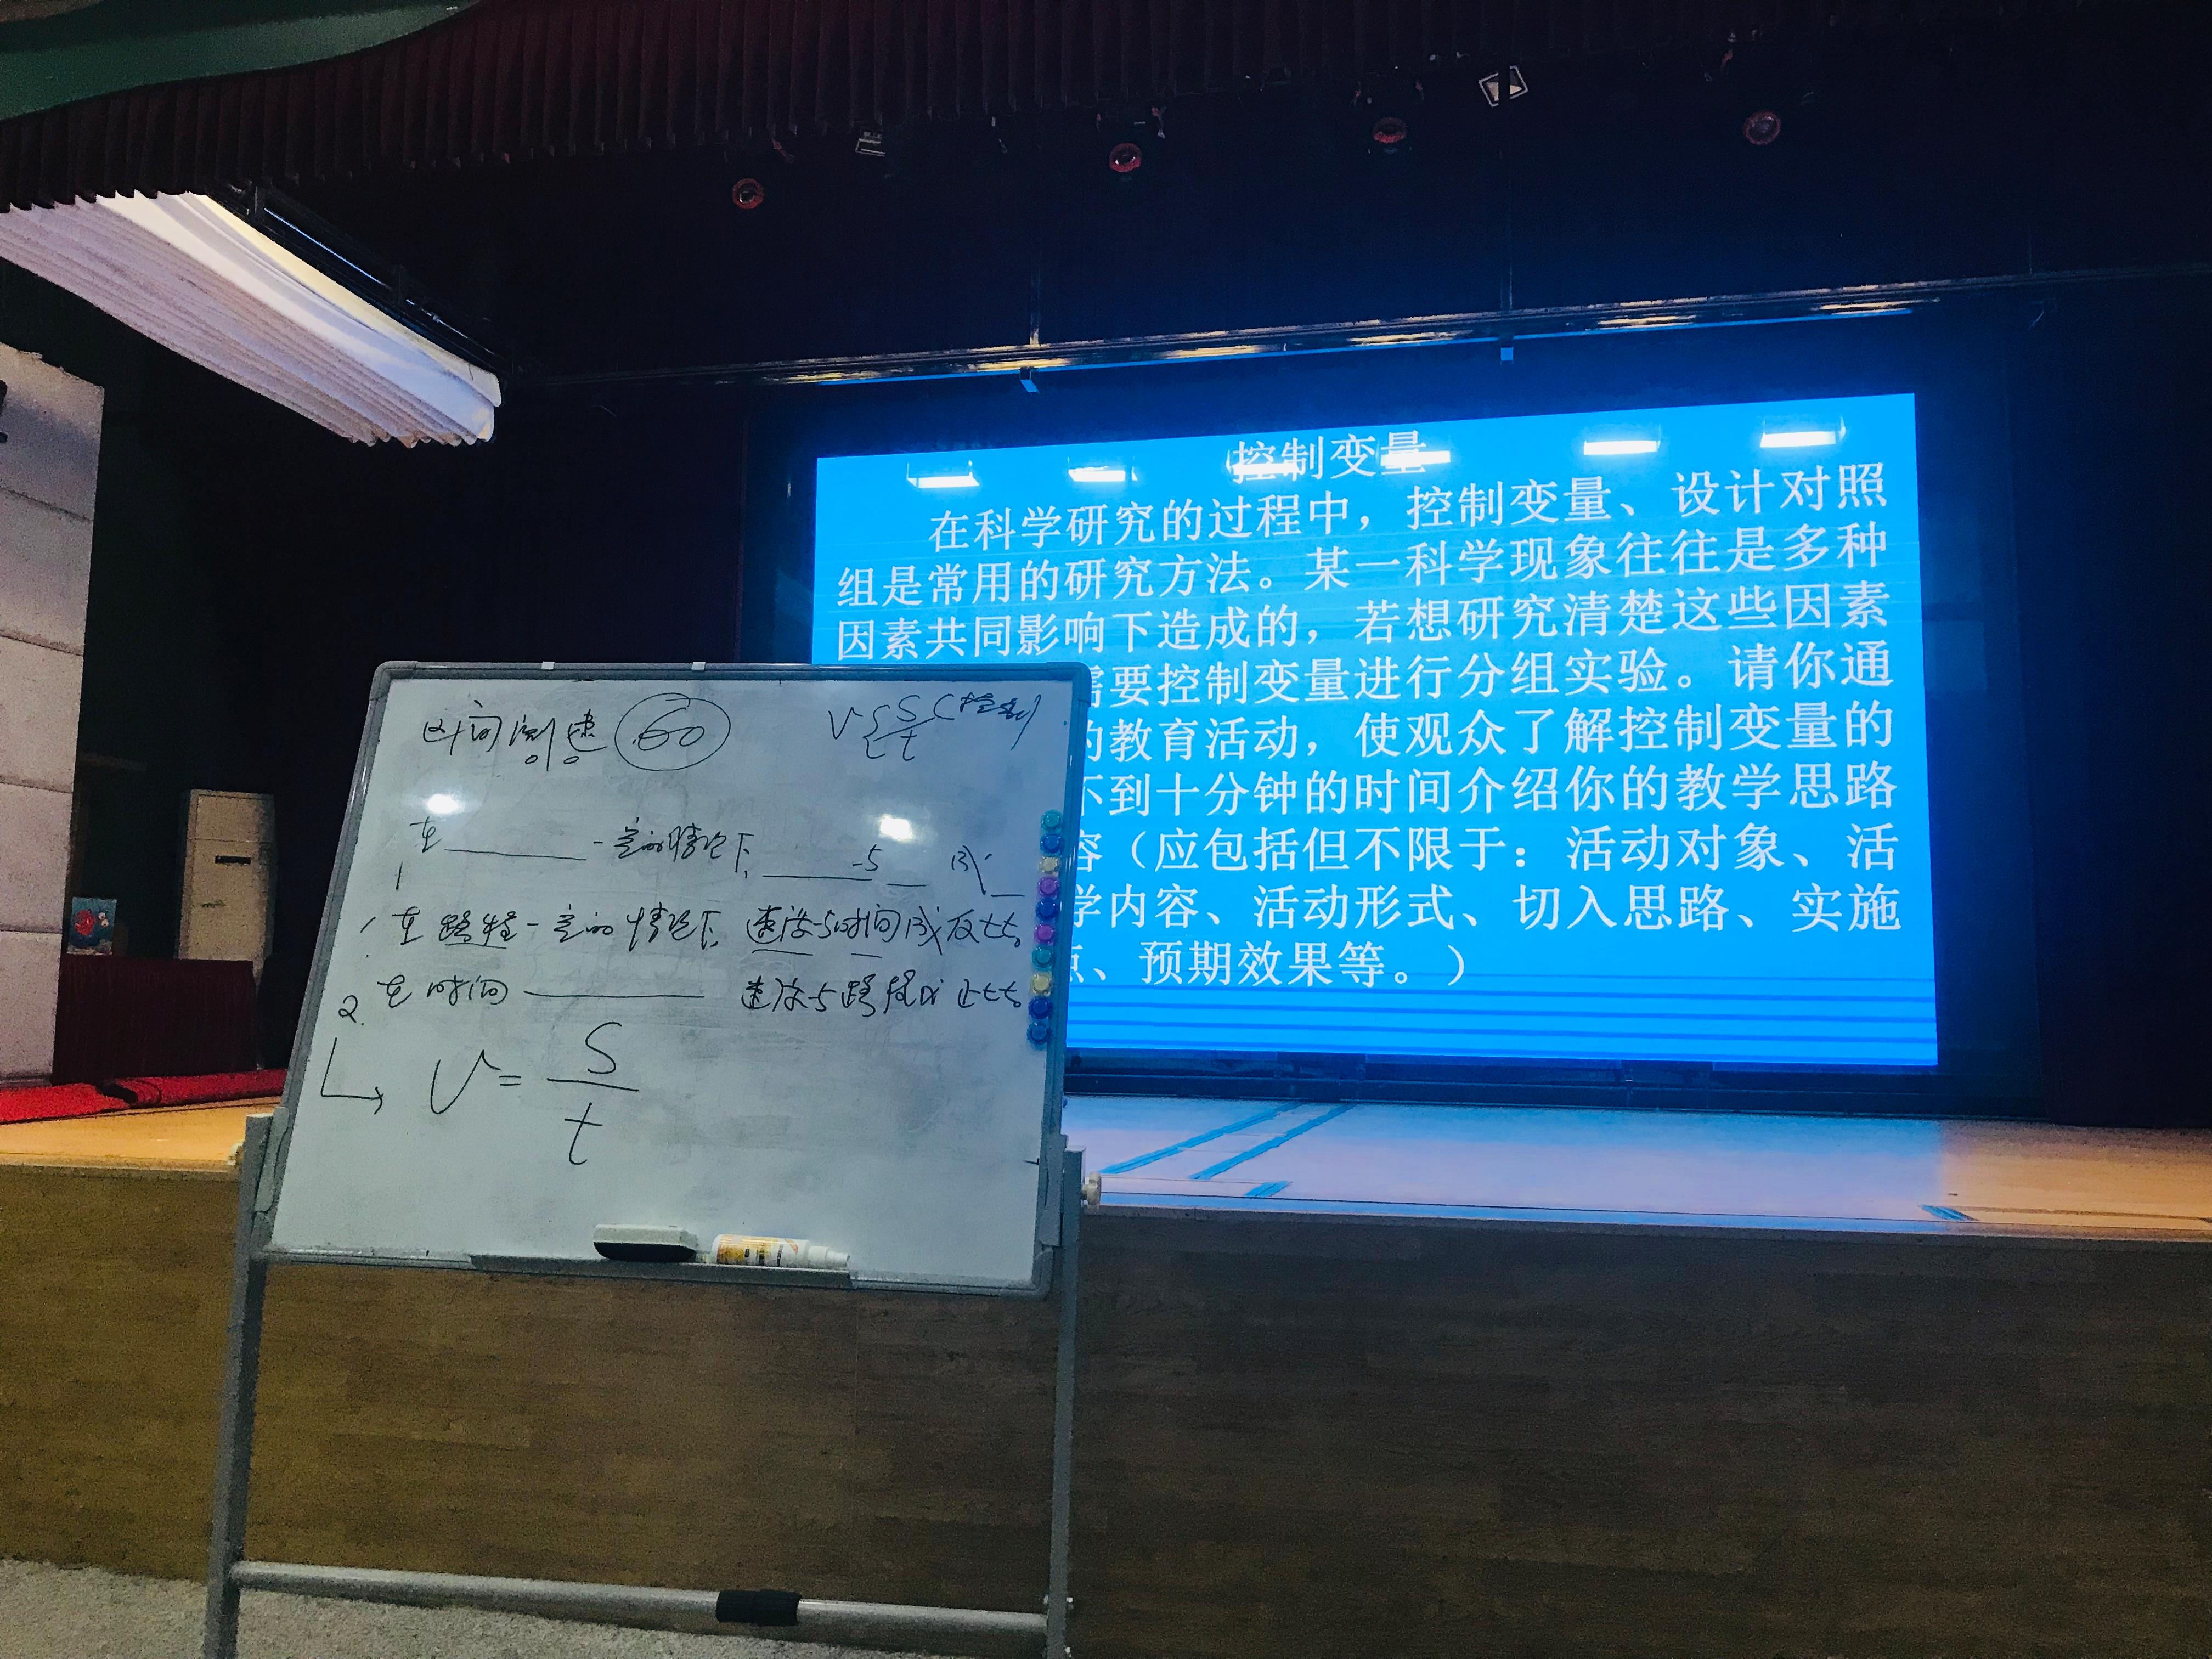 控制变量
在科学研究的过程中，控制变量、设计对照
组是常用的研究方法。某一科学现象往往是多种
因素共同影响下造成的，若想研究清楚这些因素
需要控制变量进行分组实验。请你通
的教育活动，使观众了解控制变量的
不到十分钟的时间介绍你的教学思路
容（应包括但不限于：活动对象、活
学内容、活动形式、切入思路、实施
点、预期效果等。）
区间测速 60
V { S (控制)
t
在 一定的情况下, 与 成
1 在路程一定的情况下, 速度与时间成反比。
2. 在时间 速度与路程成正比。
v = S
t